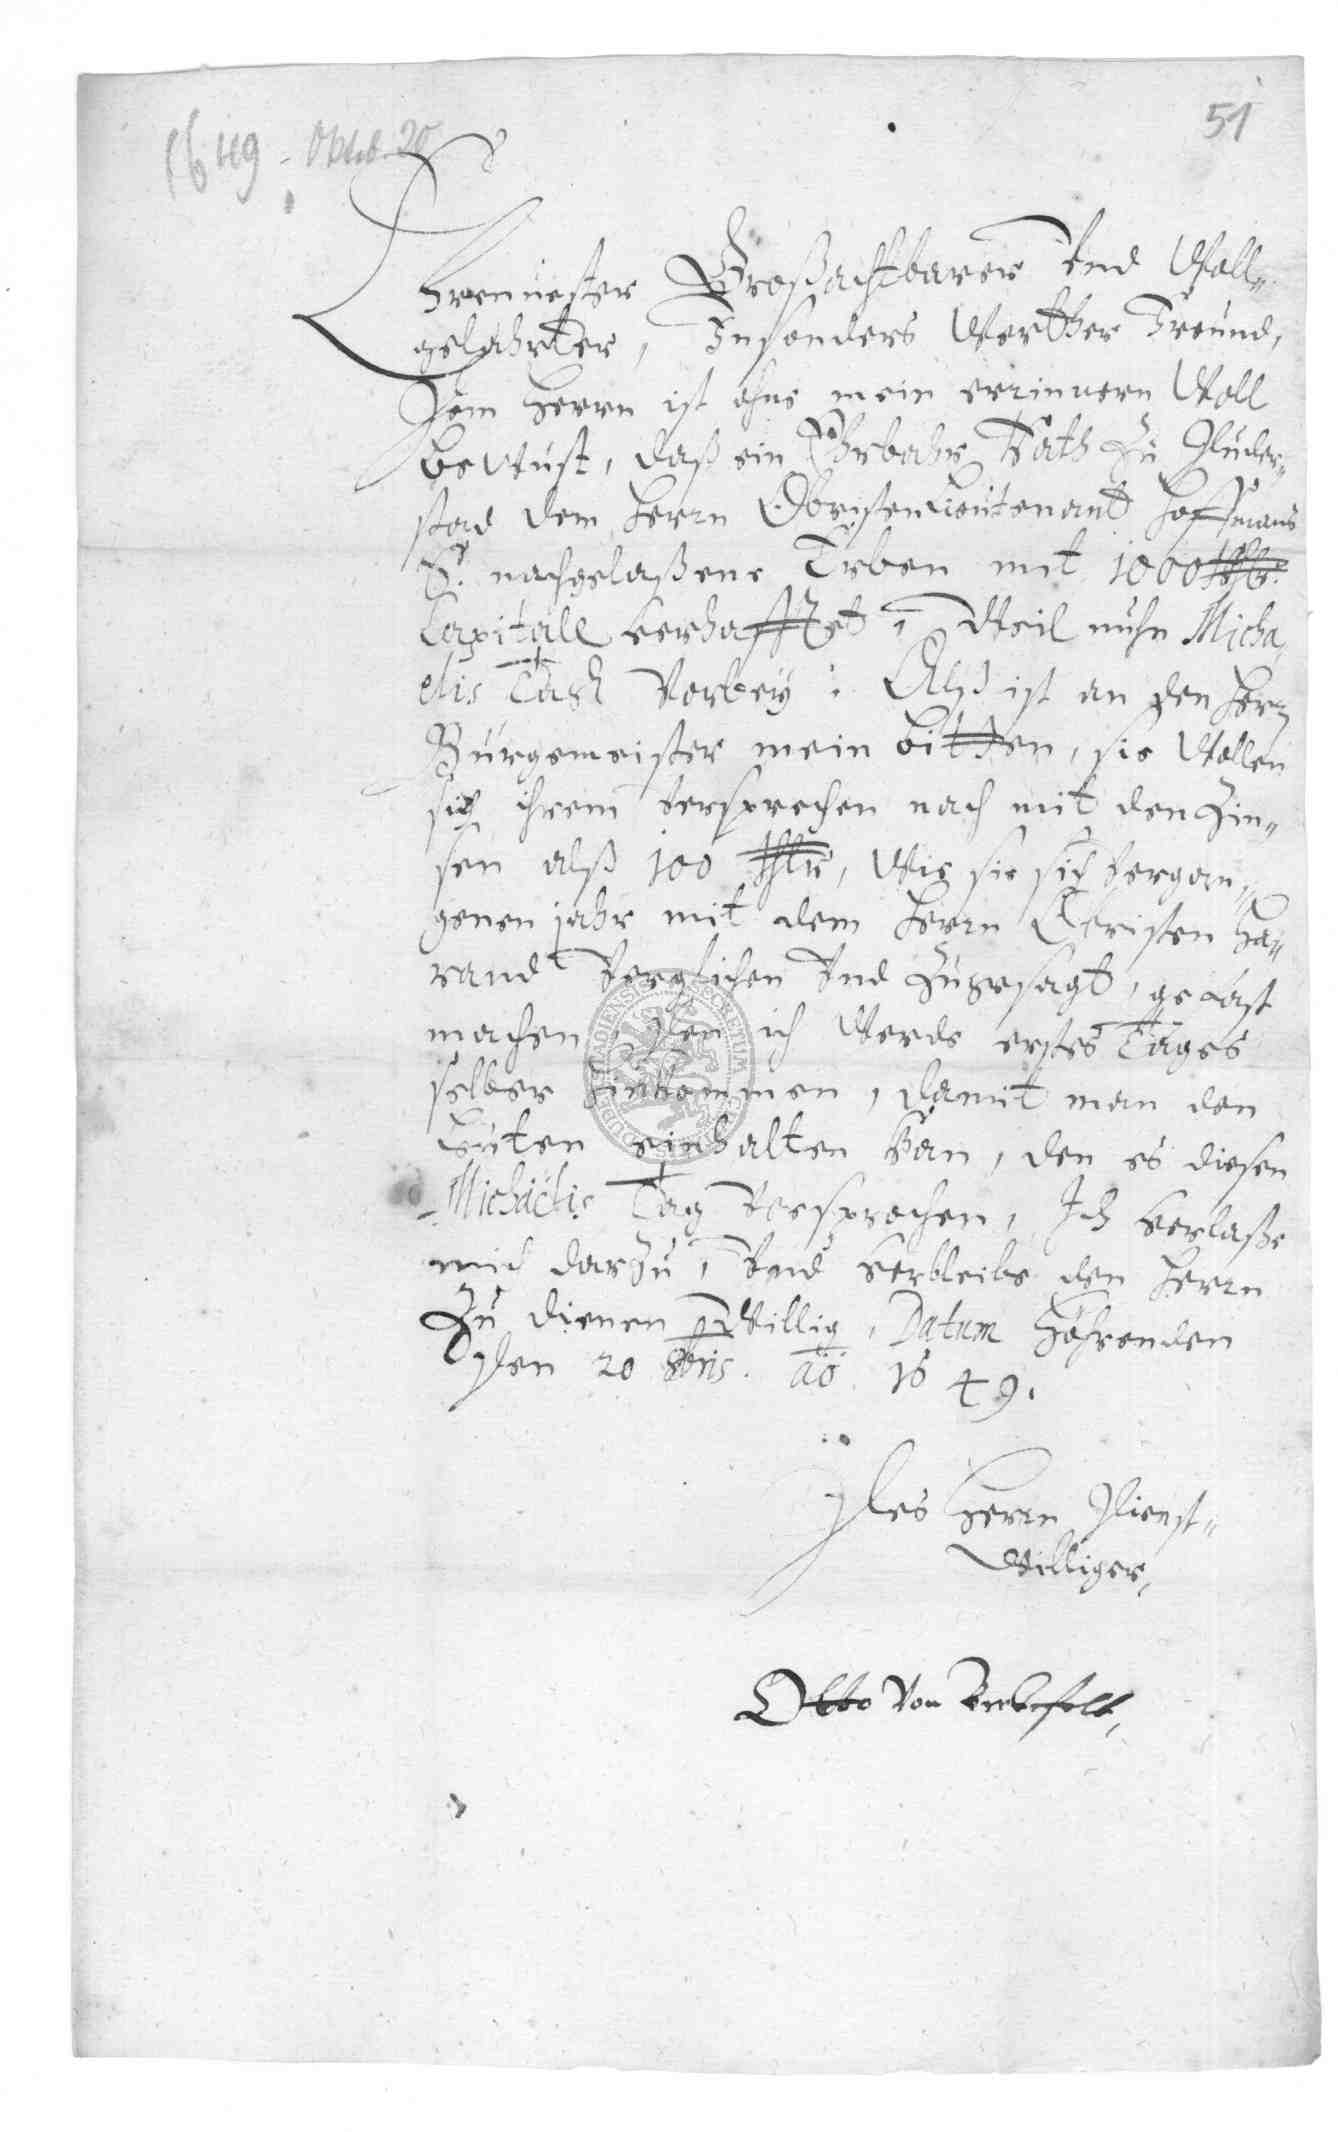 51
1649 - Oktob. 20
Ehrenuester Großachtbarer Vnd Woll„
gelahrter, Insonders Werther Freund,
Dem Herrn ist ohne mein errinnern Woll
beWust, daß ein Ehrbahr Rath Zu Duder„
stad dem Herrn ObristenLieutenant Hoffmans
S. nachgelaßene Erben mit 1000 Thlr.
Capitall verhafftet, Weil nuhn Micha„
elis Tagk Vorbey, Alß ist an den Herrn
Burgemeister mein bitten, sie Wollen
sich ihrem Versprechen nach mit den Zin„
sen alß 100 Thlr, Wie sie sich Vergan„
genen jahr mit dem Herrn Obristen Ha„
rand Verglichen Vnd Zugesagt, gefast
machen, Den ich Werde erstes Tages
selber hinkommen, damit man den
Leuten einhalten kan, den es diesen
Michaelis Tag Versprochen, Ich Verlaße
mich darzu, Vnd Verbleibe den Herrn
Zu dienen Willig, Datum
Den 20 8bris. ao 1649.
Des Herrn Dienst„
Williger,
Otto Von
SECRETUM